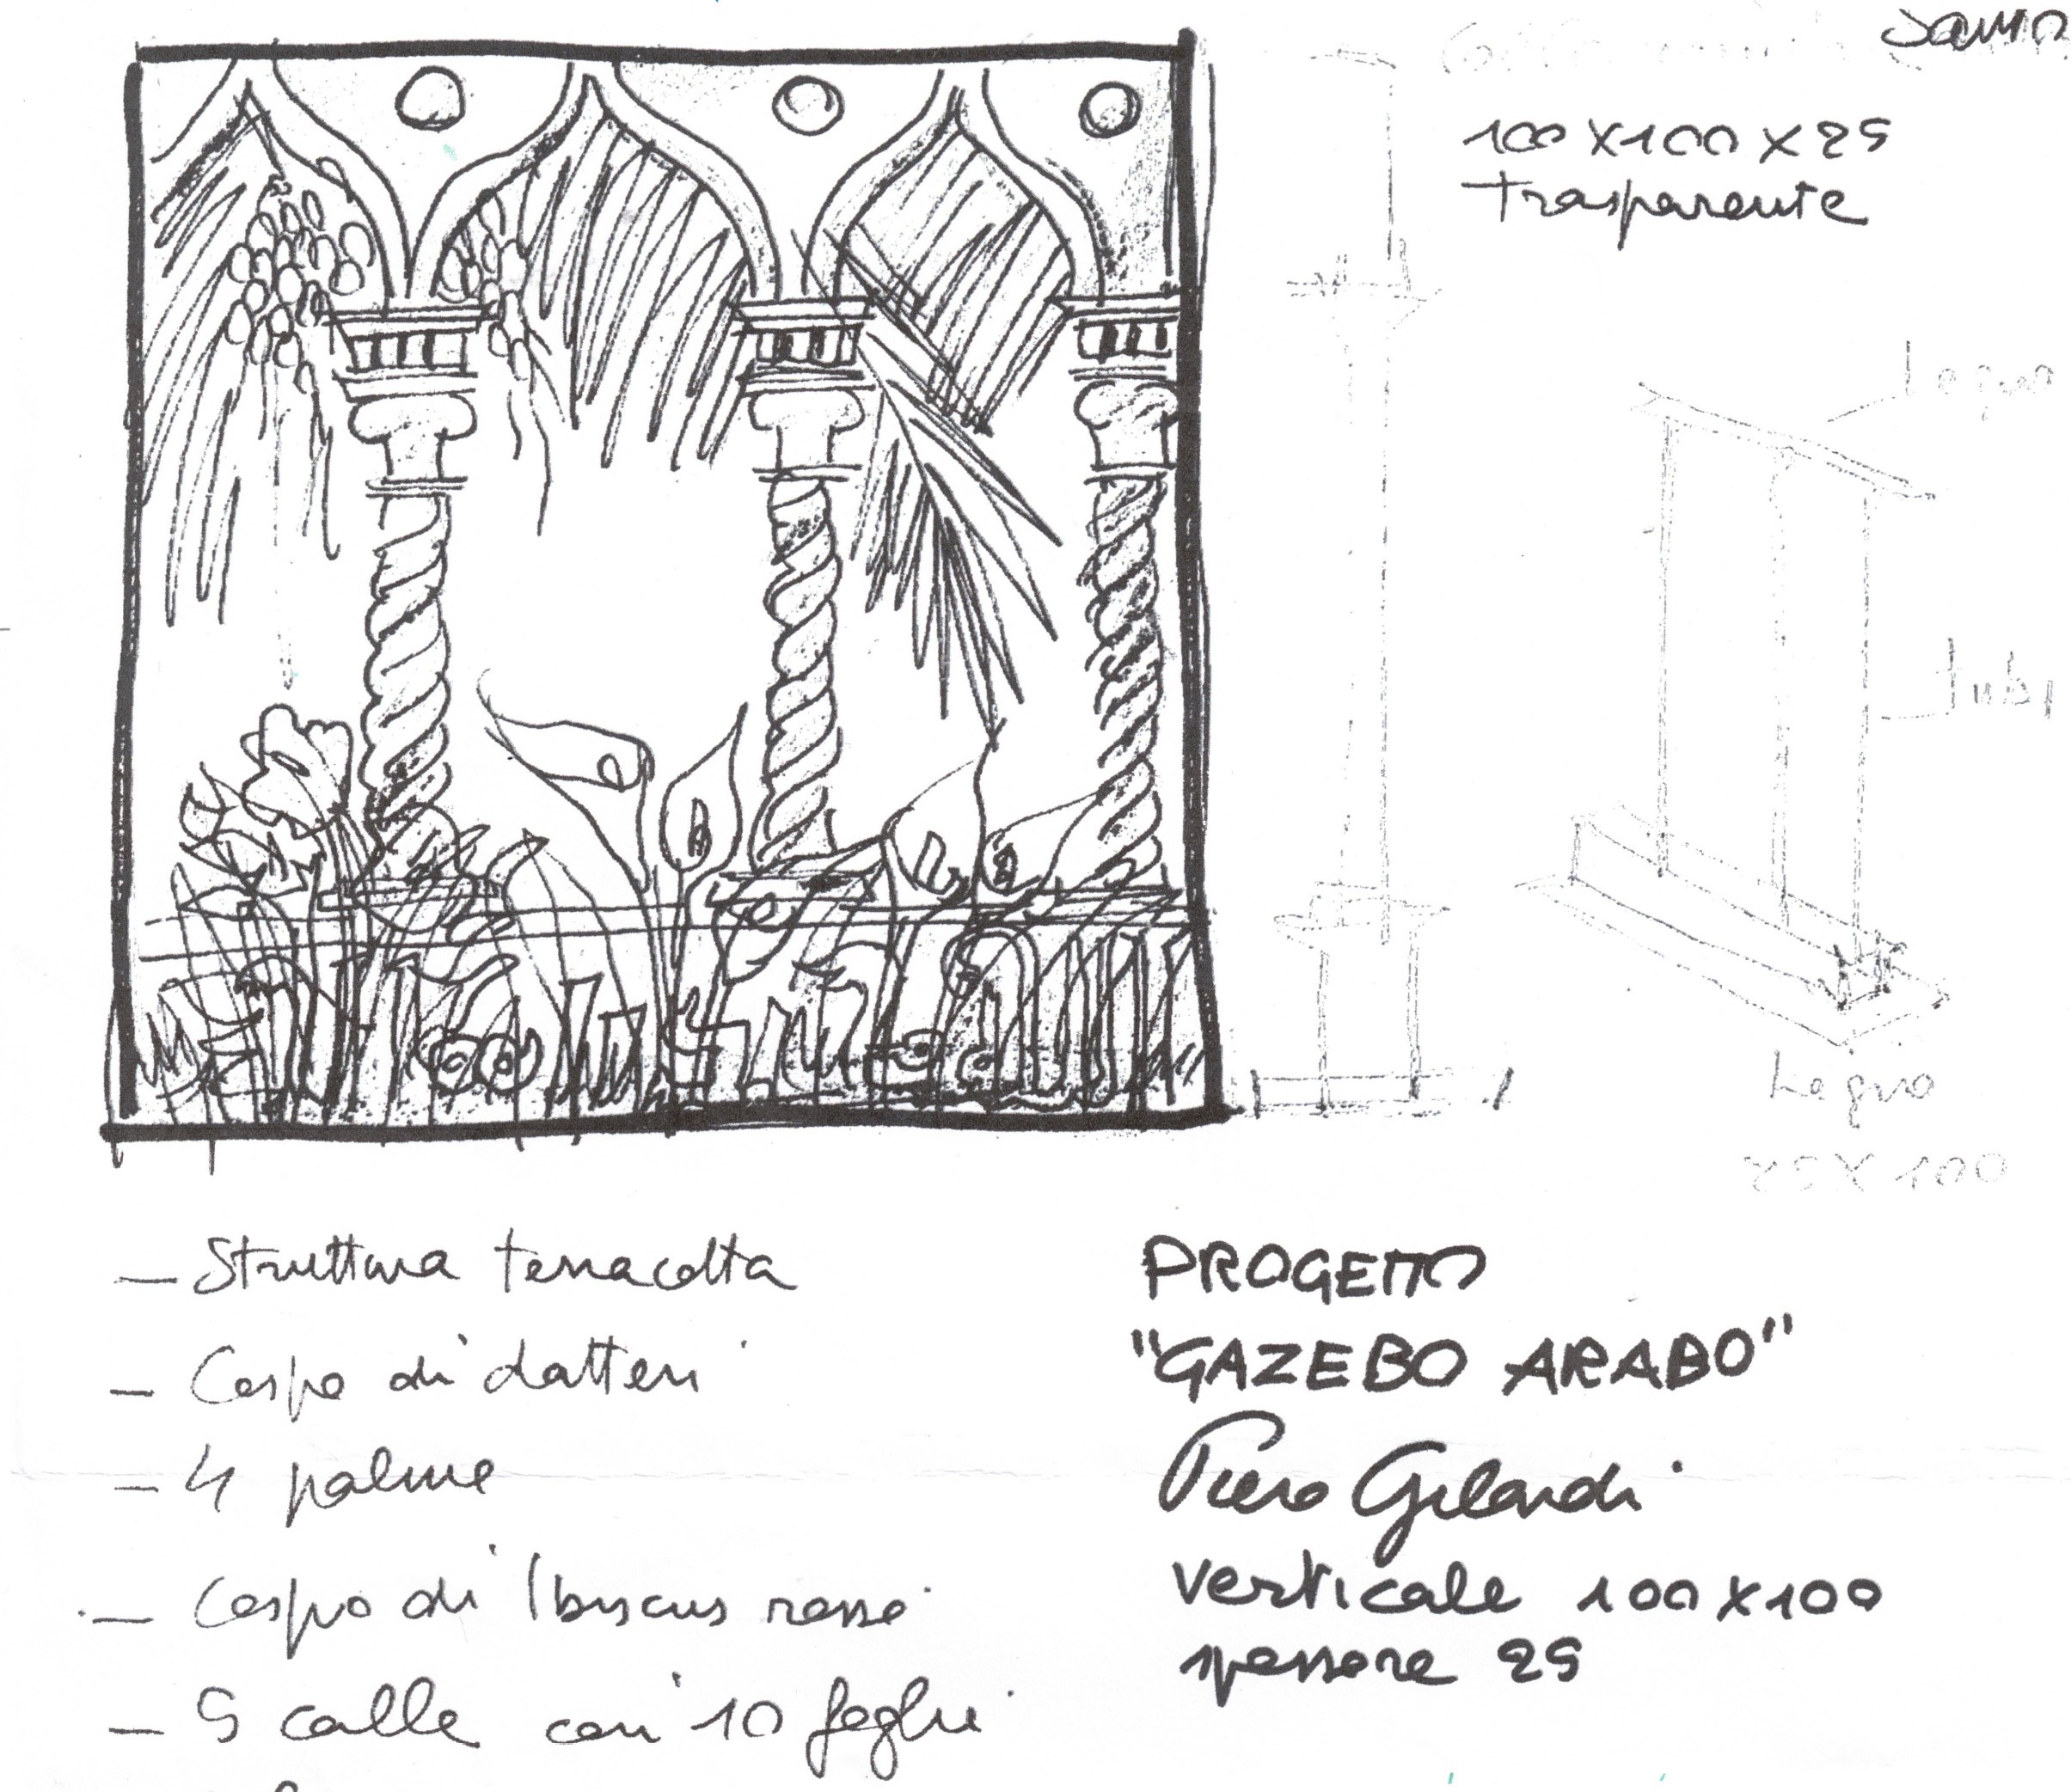 100 X 100 X 25
trasparente
Legno
tubi
Legno
25 X 100
— Struttura terracotta
— Cespo di datteri
— 4 palme
— Cespo di Ibiscus rosso
— 5 calle con 10 foglie
PROGETTO
"GAZEBO ARABO"
Piero Gilardi
verticale 100 X 100
spessore 25